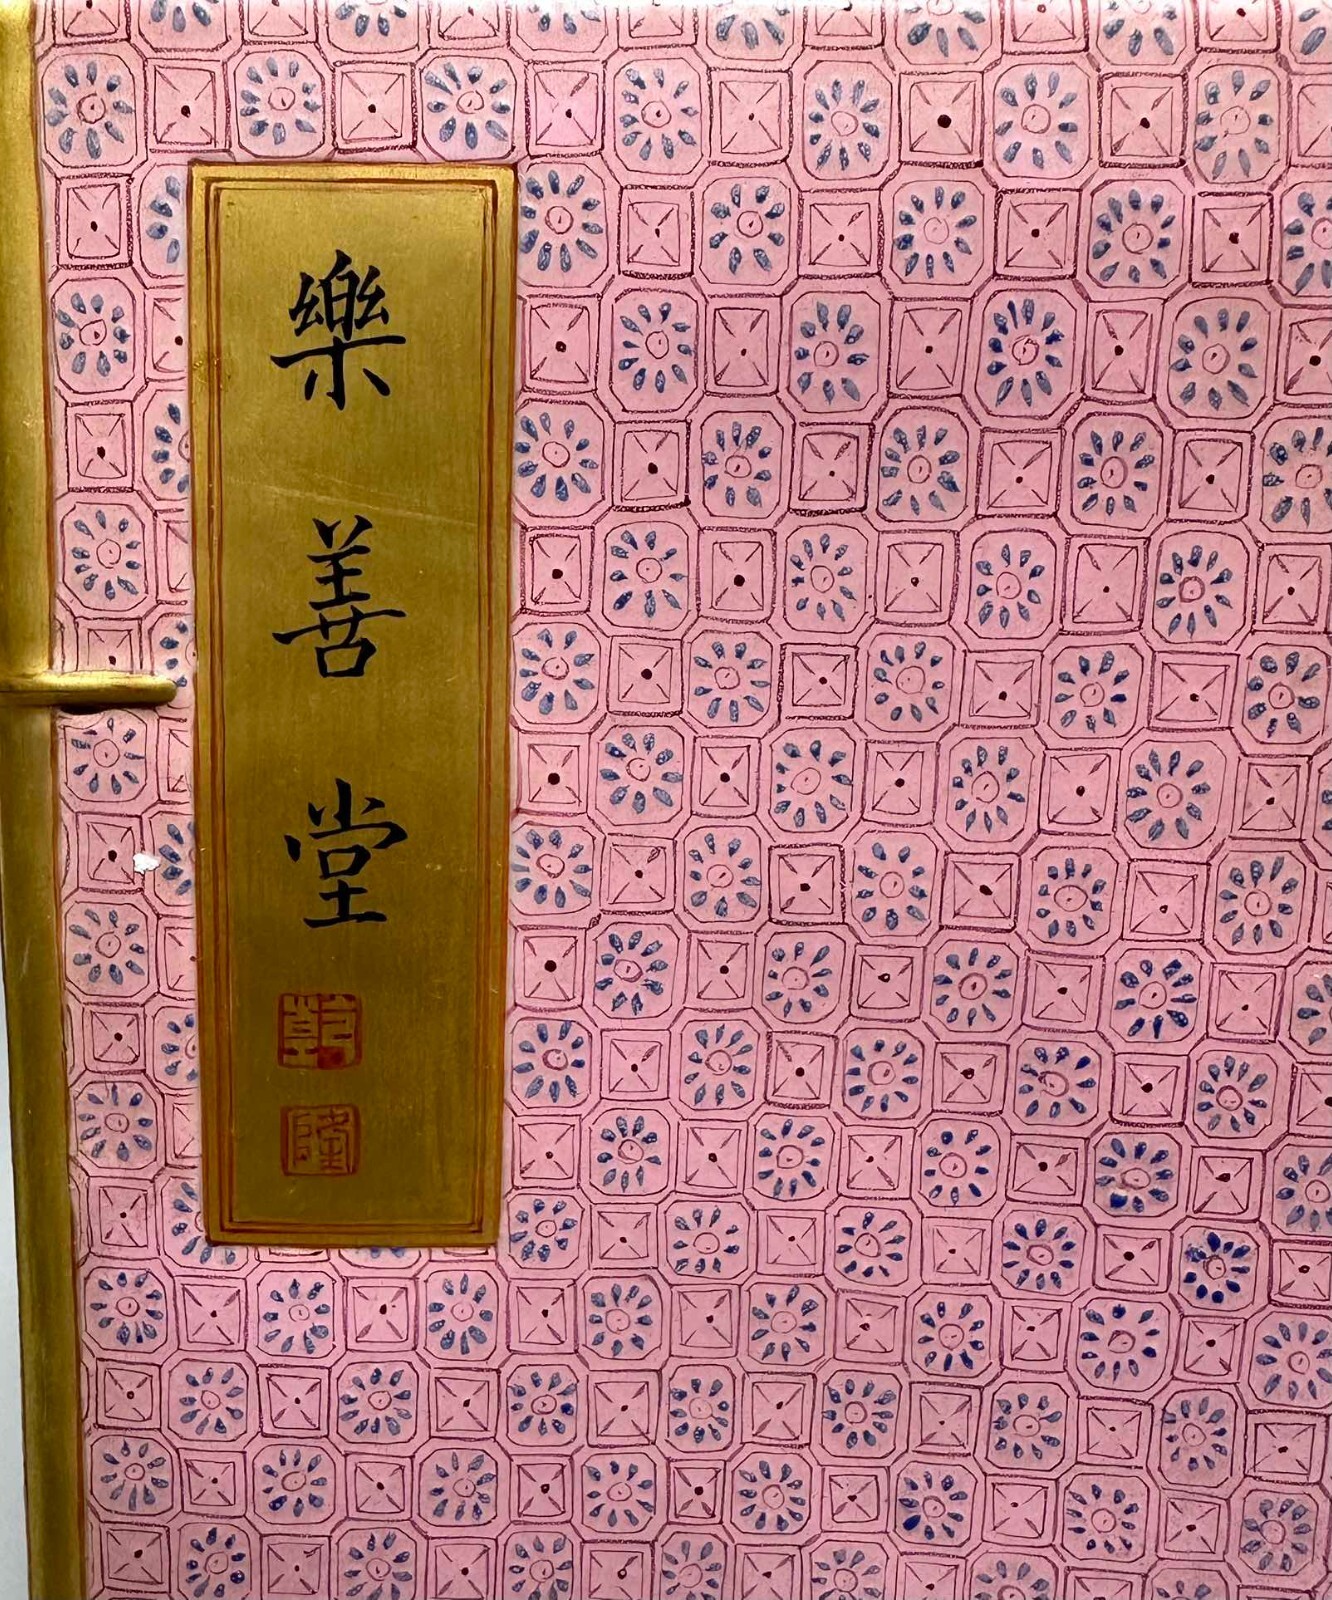 樂善堂
乾
隆